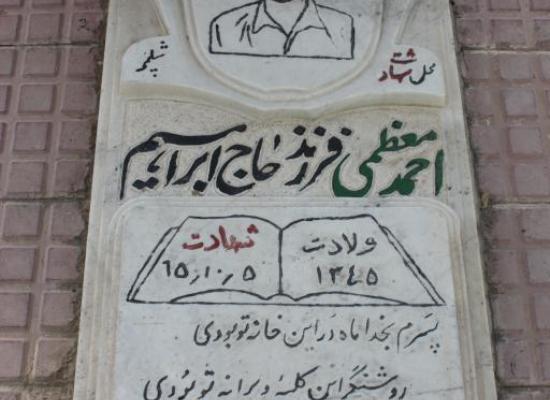 محل شهادت شلمچه
احمد معظمی فرزند حاج ابراهیم
ولادت شهادت
۱۳۴۵ ۶۵٫۱۰٫۵
پسرم بخدا ماه در این خانه تو بودی
روشنگر این کلبه ویرانه تو بودی